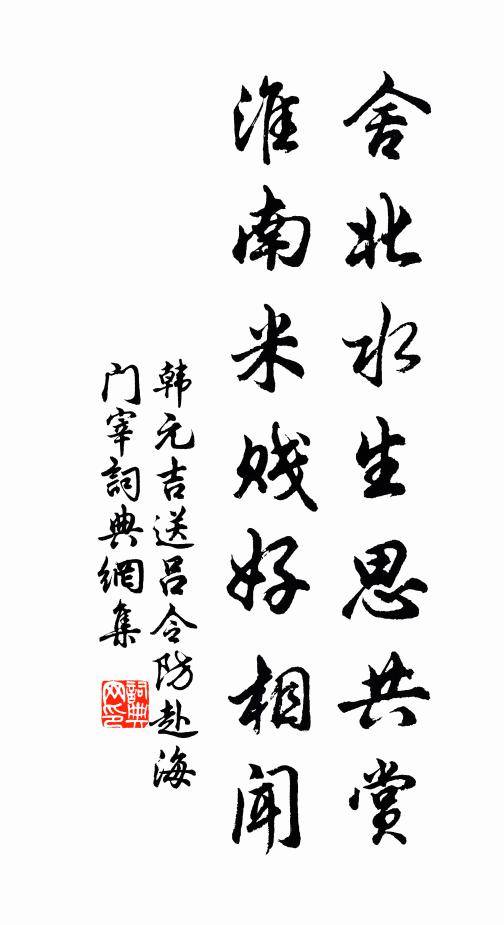 舍北水生思共赏
淮南米贱好相闻
韩元吉送吕令防赴海
门宰詞典網集
詞典
网印